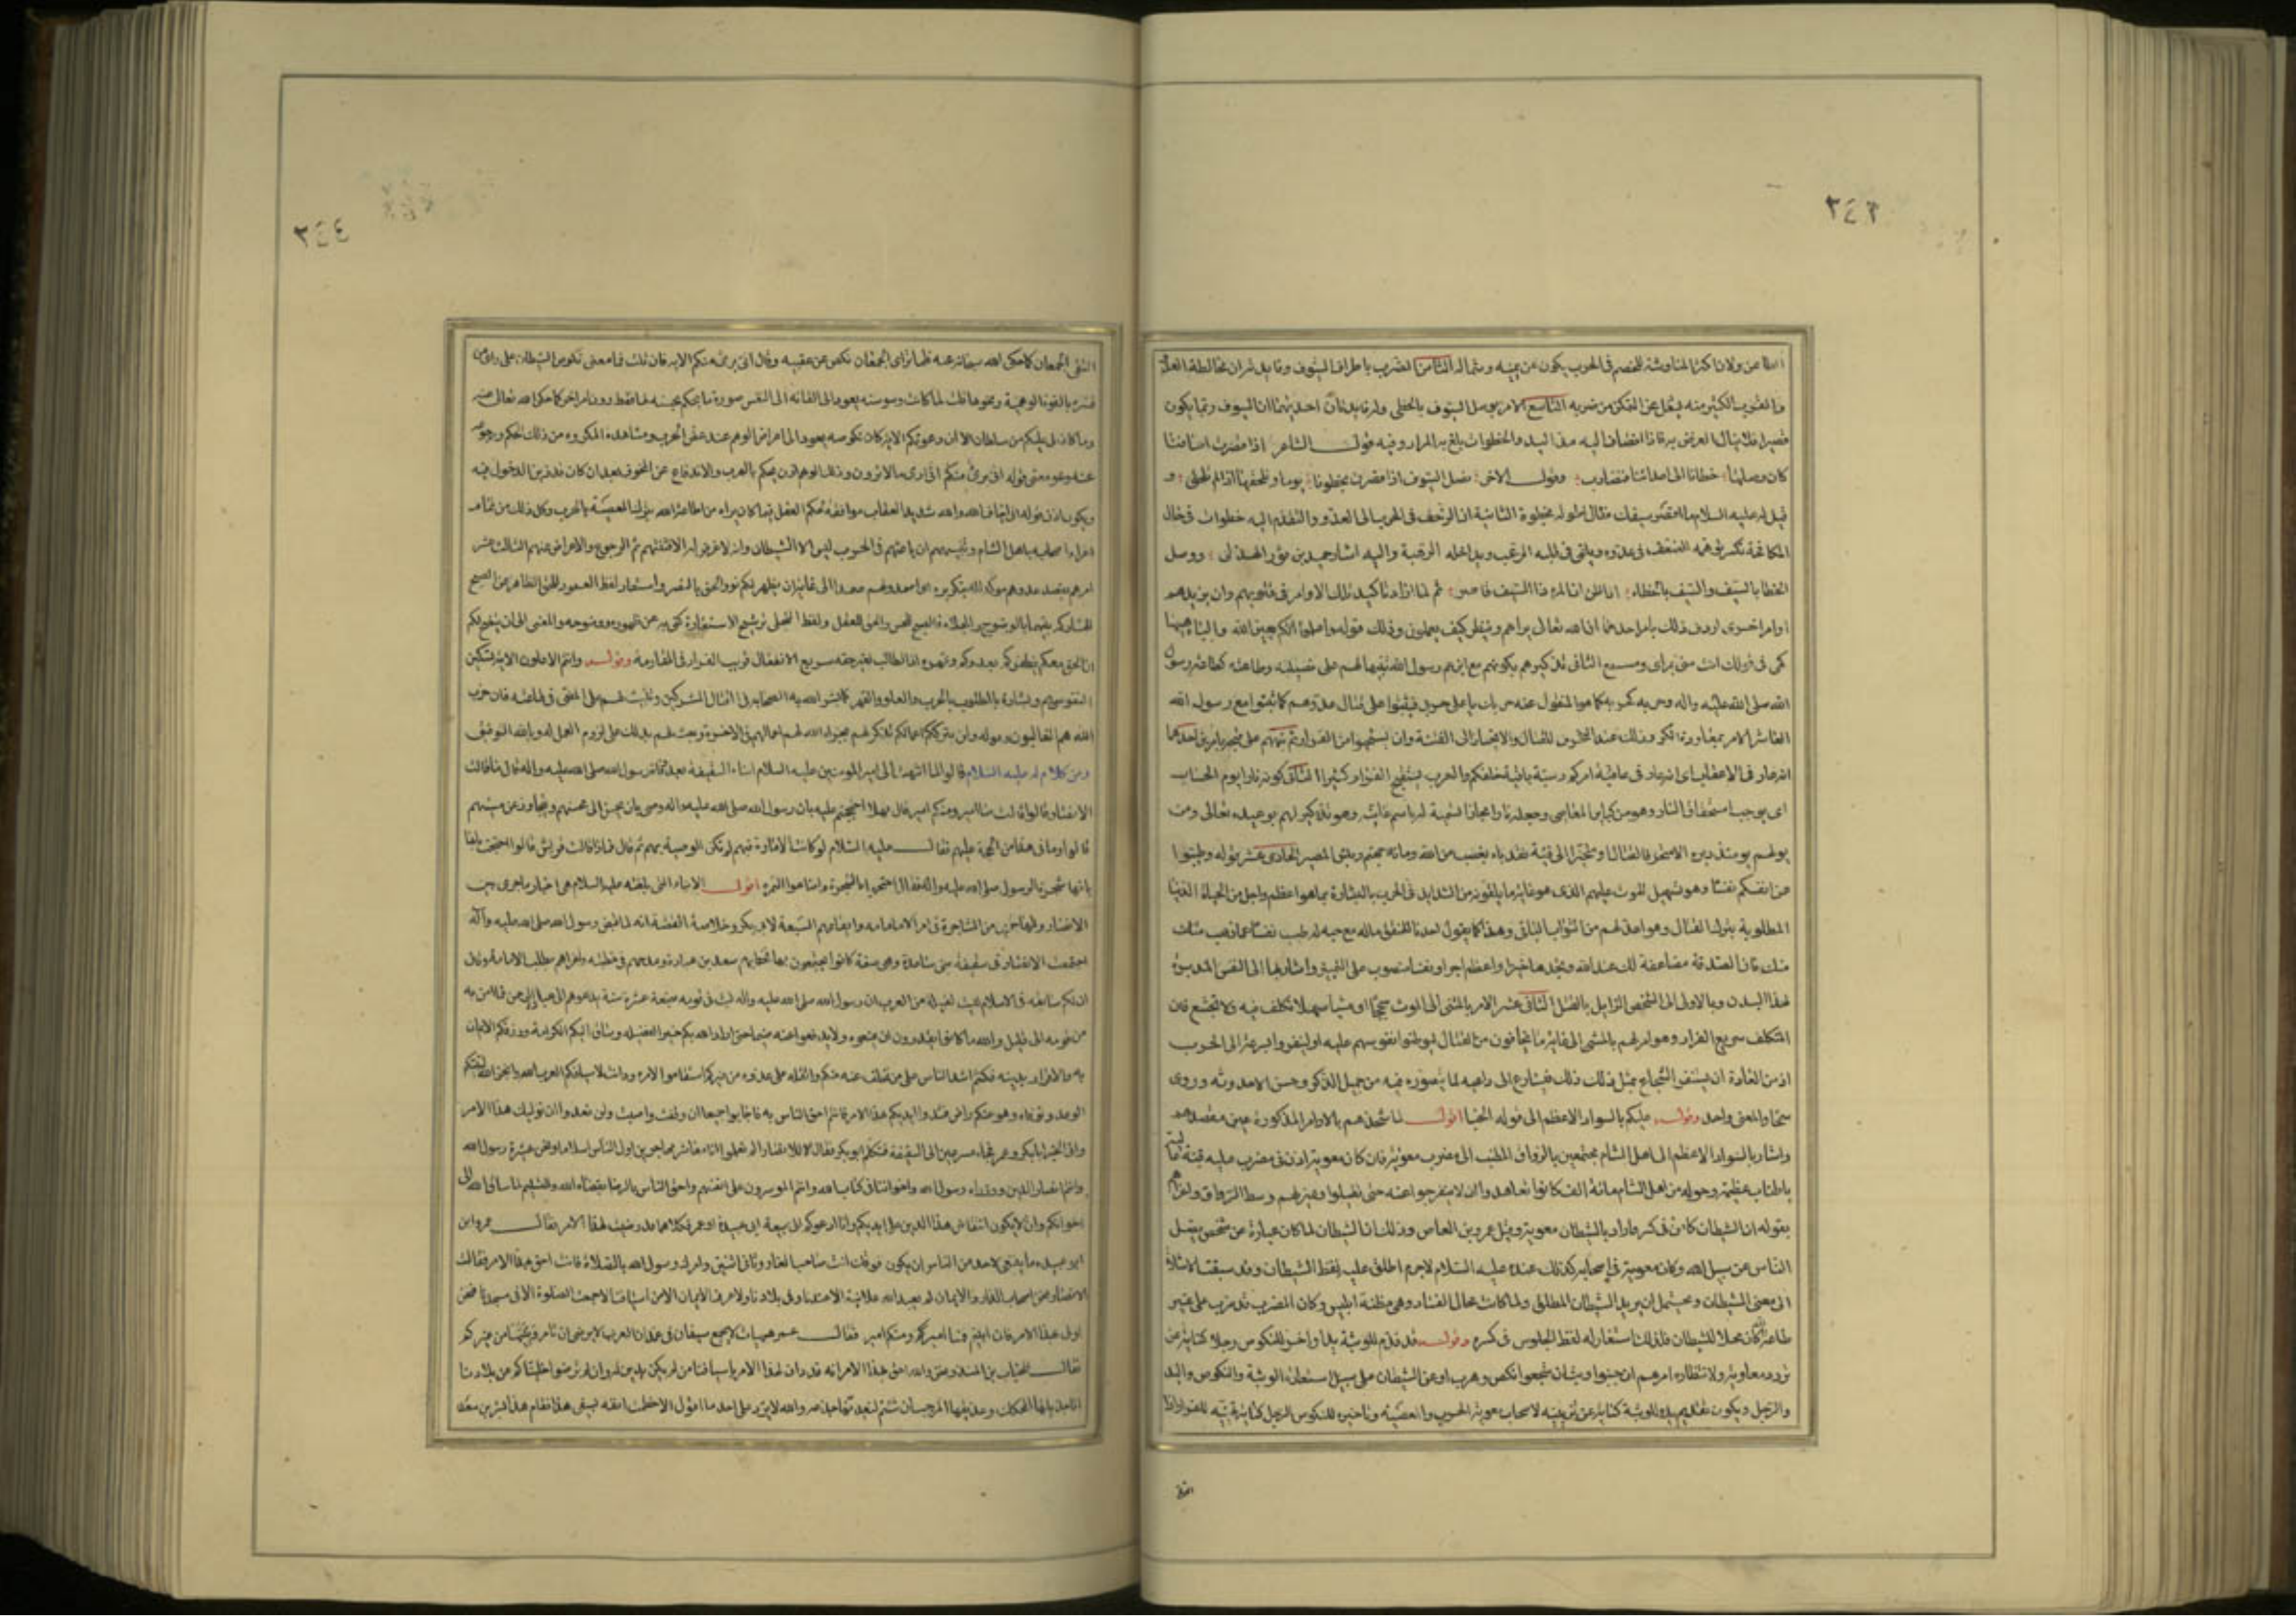 ٣٤٣
الطاعن ولان اكثر المناوشة للخصم فى الحرب يكون عن يمينه وشماله الثامن الضرب باطراف السيوف وفايدته ان مخالطة العدو
والقرب الكثير منه يشغل عن التمكن من ضربه التاسع الامر بوصل السيوف بالخطى وله فايدتان احديهما ان السيوف ربما يكون
قصيرا فلا ينال الغرض به فاذا انضاف اليه مد اليد والخطوات بلغ به المراد وفيه قول الشاعر اذا قصرت اسيافنا
كان وصلها خطانا الى اعدائنا فنضارب وقول الاخر نصل السيوف اذا قصرن بخطونا يوما ونلحقها اذا لم تلحق و
قيل له عليه السلام ما اقصر سيفك فقال اطوله بخطوة الثانية ان الزحف فى الحرب الى العدو والتقدم اليه خطوات فى حال
المكافحة تكسر توهمه الضعف فى عدوه ويلقى فى قلبه الرعب ويداخله الرهبة واليه اشار حميد بن ثور الهذلى ووصل
الخطا بالسيف والسيف بالخطاء اذا ظن ان المرء ذا السيف قاصر ثم لما اراد تاكيد تلك الاوامر فى قلوبهم وان يزيدهم
اوامر اخرى اردف ذلك بامر احدهما ان الله تعالى يراهم وينظر كيف يعملون وذلك قوله واعلموا انكم بعين الله والباء هيهنا
كهى فى قولك انت منى بمراى ومسمع الثانى تذكيرهم بكونهم مع ابن عم رسول الله تنبيها لهم على فضيلته وطاعته كطاعة رسول
الله صلى الله عليه واله وحربه كحربه كما هو المنقول عنه حربك يا على حربى فيثبتوا على قتال عدوهم كما ثبتوا مع رسول الله
العاشر الامر بمعاودة الكر وذلك عند التحرف للقتال والانحياز الى الفئة وان يستحيوا من الفرار ثم نبههم على قبحه بامرين احدهما
انه عار فى الاعقاب اى انه عار فى عاقبة امركم وسبة باقية خلفكم والعرب يستقبح الفرار كثيرا الثانى كونه نارا يوم الحساب
اى يوجب استحقاق النار وهو من كباير المعاصى وجعله نارا مجازا تسمية له باسم غايته وهو تذكير لهم بوعيده تعالى ومن
يولهم يومئذ دبره الا متحرفا لقتال او متحيزا الى فئة فقد باء بغضب من الله وماواه جهنم وبئس المصير الحادى عشر قوله وطيبوا
عن انفسكم نفسا وهو تسهيل للموت عليهم الذى هو غاية ما يلقونه من الشدايد فى الحرب بالبشارة بما هو اعظم واجل من الحياة الدنيا
المطلوبة بترك القتال وهو ما عد لهم من الثواب الباقى وهذا كما يقول احدنا للمنفق ماله مع حبه له طب نفسا عما ذهب منك
منك فان الصدقة مضاعفة لك عند الله وتجدها خيرا واعظم اجرا ونفسا منصوب على التمييز واشار بها الى النفس المدبرة
لهذا البدن وبالاولى الى الشخص الزايل بالقتل الثانى عشر الامر بالمشى الى الموت سجحا اى مشيا سهلا لا تكلف فيه ولا تجشع فان
المتكلف سريع الفرار وهو امر لهم بالمشى الى غاية ما يخافون من القتال ليوطنوا نفوسهم عليه او لينفروا بسرعة الى الحرب
اذ من العادة ان يستنفر الشجاع بمثل ذلك فيسارع الى داعيه لما يتصوره فيه من جميل الذكر وحسن الاحدوثة وروى
سمحا والمعنى واحد وقوله عليكم بالسواد الاعظم الى قوله الخبا اقول لما شحذهم بالاوامر المذكورة عين مقصدهم
واشار بالسواد الاعظم الى اهل الشام مجتمعين بالرواق المطنب الى مضرب معوية فان كان معوية اذن فى مضرب عليه قبة
باطناب عظيمة وحوله من اهل الشام مائة الف كانوا تعاهدوا ان لا ينفرجوا عنه حتى يقتلوا وعين لهم وسط الرواق
بقوله ان الشيطان كامن فى كسره واراد بالشيطان معوية وقيل عمرو بن العاص وذلك ان الشيطان لما كان عبارة عن شخص يضل
الناس عن سبيل الله وكان معوية فى اصحابه كذلك عنده عليه السلام لاجرم اطلق عليه لفظ الشيطان وقد سبقت الاشارة
الى معنى الشيطان ويحتمل ان يريد الشيطان المطلق ولما كانت محال الفساد وهى مظنة ابليس وكان المضرب قد ضرب على غير
طاعة الله كان محلا للشيطان فلذلك استعار له لفظ الجلوس فى كسره وقوله قد قدم للوثبة يدا واخر للنكوص رجلا كناية عن
تردد معاوية ولانتظاره امرهم ان جبنوا وثب وان شجعوا نكص وهرب او عن الشيطان على سبيل استعارة الوثبة والنكوص واليد
والرجل ويكون تقديم يده للوثبة كناية عن تزيينه لاصحاب معوية الحرب والمعصية وتاخيره للنكوص الرجل كناية تهيئه للفرار اذا
التقى
٣٤٤
التقى الجمعان كما حكى الله سبحانه عنه فلما ترائ الجمعان نكص على عقبيه وقال انى برئ منكم الاية فان قلت فما معنى نكوص الشيطان على راى من
فسره بالقوة الوهمية ونحوها قلت لما كانت وسوسته يعود الى القائه الى النفس صورة ما يحكم بحسنه لها فقط دون امر اخر كما حكى الله تعالى عنه
وما كان لى عليكم من سلطان الا ان دعوتكم الاية كان نكوصه يعود الى اعراض الوهم عند عض الحرب ومشاهدة المكروه من ذلك الحكم ورجوعه
عنه وهو معنى قوله انى برئ منكم انى ارى ما لا ترون وذلك الوهم اذن يحكم بالهرب والاندفاع عن المخوف بعد ان كان قد زين الدخول فيه
ويكون اذن قوله انى اخاف الله والله شديد العقاب موافقة لحكم العقل فيما كان يراه من طاعة الله بترك المعصية بالحرب وكل ذلك من تمام
اغراء اصحابه باهل الشام وتنبيههم ان باعثهم فى الحرب ليس الا الشيطان وانه لا غرض له الا فتنتهم ثم الرجوع والاعراض عنهم الثالث عشر
امرهم بقصد عدوهم مؤكدا له بتكريره اى اصمدوا لهم صمدا الى غاية ان يظهر لكم نور الحق بالنصر واستعار لفظ العمود للحق الظاهر عن الصبح
لمشاركته بينهما بالوضوح والجلاء فالصبح للحس والحق للعقل ولفظ التجلى ترشيح الاستعارة كنى به عن ظهوره ووضوحه والمعنى الى ان يتضح لكم
ان الحق معكم بظفركم بعدوكم وقهره اذ الطالب لغير حقه سريع الانفعال قريب الفرار فى المقاومة وقوله وانتم الاعلون الاية تسكين
لنفوسهم وبشارة بالمطلوب بالحرب والعلو والقهر كما بشر الله به الصحابة فى قتال المشركين وتثبيت لهم على المضى فى طاعته فان حزب
الله هم الغالبون وقوله ولن يتركم اعمالكم تذكير لهم بجزاء الله لهم اعمالهم فى الاخرة وبعث لهم بذلك على لزوم العمل له وبالله التوفيق
ومن كلام له عليه السلام قالوا لما انتهت الى امير المؤمنين عليه السلام انباء السقيفة بعد وفاة رسول الله صلى الله عليه واله قال ما قالت
الانصار قالوا قالت منا امير ومنكم امير قال فهلا احتججتم عليهم بان رسول الله صلى الله عليه واله وصى بان يحسن الى محسنهم ويتجاوز عن مسيئهم
قالوا وما فى هذا من الحجة عليهم فقال عليه السلام لو كانت الامارة فيهم لم تكن الوصية بهم ثم قال فماذا قالت قريش قالوا احتجت
بانها شجرة الرسول صلى الله عليه واله فقال احتجوا بالشجرة واضاعوا الثمرة اقول الانباء التى بلغته عليه السلام هى اخبار ما جرى بين
الانصار والمهاجرين من المشاجرة فى امر الامامة وايقاعهم البيعة لابى بكر وخلاصة القصة انه لما قبض رسول الله صلى الله عليه وآله
اجتمعت الانصار فى سقيفة بنى ساعدة وهى صفة كانوا يجتمعون بها فخطبهم سعد بن عبادة ومدحهم فى خطبته واغراهم بطلب الامامة وقال
ان لكم سابقة فى الاسلام ليست لقبيلة من العرب ان رسول الله صلى الله عليه واله لبث فى قومه بضعة عشرة سنة يدعوهم الى عبادة الرحمن فما امن به
من قومه الى قليل والله ما كانوا يقدرون ان يمنعوه ولا يدفعوا عنه ضيما حتى اراد الله بكم خير الفضيلة وساق اليكم الكرامة ورزقكم الايمان
به والاقرار بدينه فكنتم اشد الناس على من تخلف عنه منكم واثقله على عدوه من غيركم حتى استقاموا لامره ودانت لاسيافكم العرب وانجز الله لنبيكم
الوعد وتوفاه وهو عنكم راض فشدوا ايديكم بهذا الامر فانكم احق الناس به فاجابوا جميعا ان وفقت واصبت ولن نعدو ان نوليك هذا الامر
واتى الخبر ابا بكر وعمر فجاء مسرعين الى السقيفة فتكلم ابو بكر فقال للانصار الم تعلموا انا معاشر المهاجرين اول الناس اسلاما ونحن عشيرة رسول الله
وانتم انصار الدين ووزراء رسول الله واخواننا فى كتاب الله وانتم المؤثرون على انفسهم واحق الناس بالرضا بقضاء الله والتسليم لما ساق الله الى
اخوانكم وان لا يكون انتقاض هذا الدين على ايديكم وانا ادعوكم الى بيعة ابى عبيدة او عمر فكلاهما قد رضيت لهذا الامر فقال عمر وابو
ابو عبيدة ما ينبغى لاحد من الناس ان يكون فوقك انت صاحب الغار وثانى اثنين وامرك رسول الله بالصلاة فانت احق بهذا الامر فقالت
الانصار نحن اصحاب الدار والايمان لم يعبد الله علانية الا عندنا وفى بلادنا ولا عرف الايمان الا من اسيافنا ولا جمعت الصلوة الا فى مسجدنا فنحن
اولى بهذا الامر فان ابيتم فمنا امير ومنكم امير فقال عمر هيهات لا يجمع سيفان فى غمد ان العرب لا يرضى ان تامركم ونبيها من غيركم
فقال الحباب بن المنذر نحن والله احق بهذا الامر انه قد دان لهذا الامر باسيافنا من لم يكن يدين له وان لم ترضوا اجليناكم عن بلادنا
انا جذيلها المحكك وعذيقها المرجب ان شئتم لنعيدنها جذعة والله لا يرد على احد ما اقول الا حطمت انفه بسيفى هذا فقام هذا بشر بن سعد